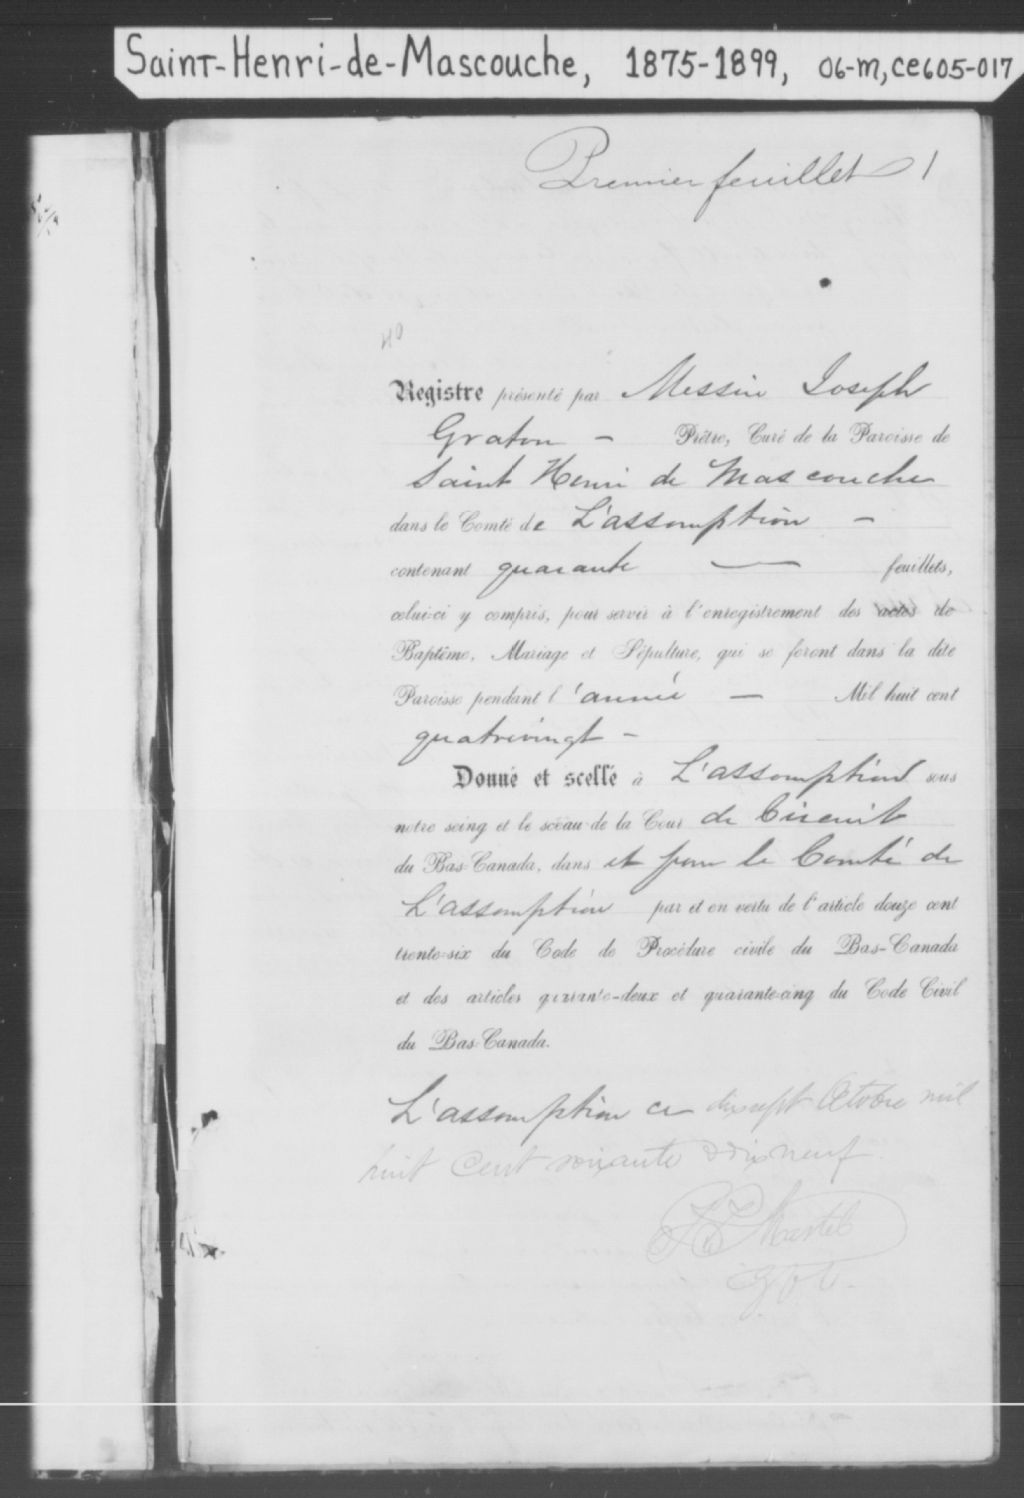 Saint-Henri-de-Mascouche, 1875-1899, 06-M, CE605-017
Premier feuillet 1
40
Registre présenté par Messire Joseph
Graton – Prêtre, Curé de la Paroisse de
Saint Henri de Mascouche
dans le Comté de L'assomption –
contenant quarante — feuillets,
celui-ci y compris, pour servir à l'enregistrement des actes de
Baptême, Mariage et Sépulture, qui se feront dans la dite
Paroisse pendant l'année — Mil huit cent
quatrevingt –
Donné et scellé à L'assomption sous
notre seing et le sceau de la Cour de Circuit
du Bas-Canada, dans et pour le Comté de
L'assomption par et en vertu de l'article douze cent
trente-six du Code de Procédure civile du Bas-Canada
et des articles quarante-deux et quarante-cinq du Code Civil
du Bas-Canada.
L'assomption ce dixsept Octobre mil
huit Cent soixante & dix neuf.
Martel